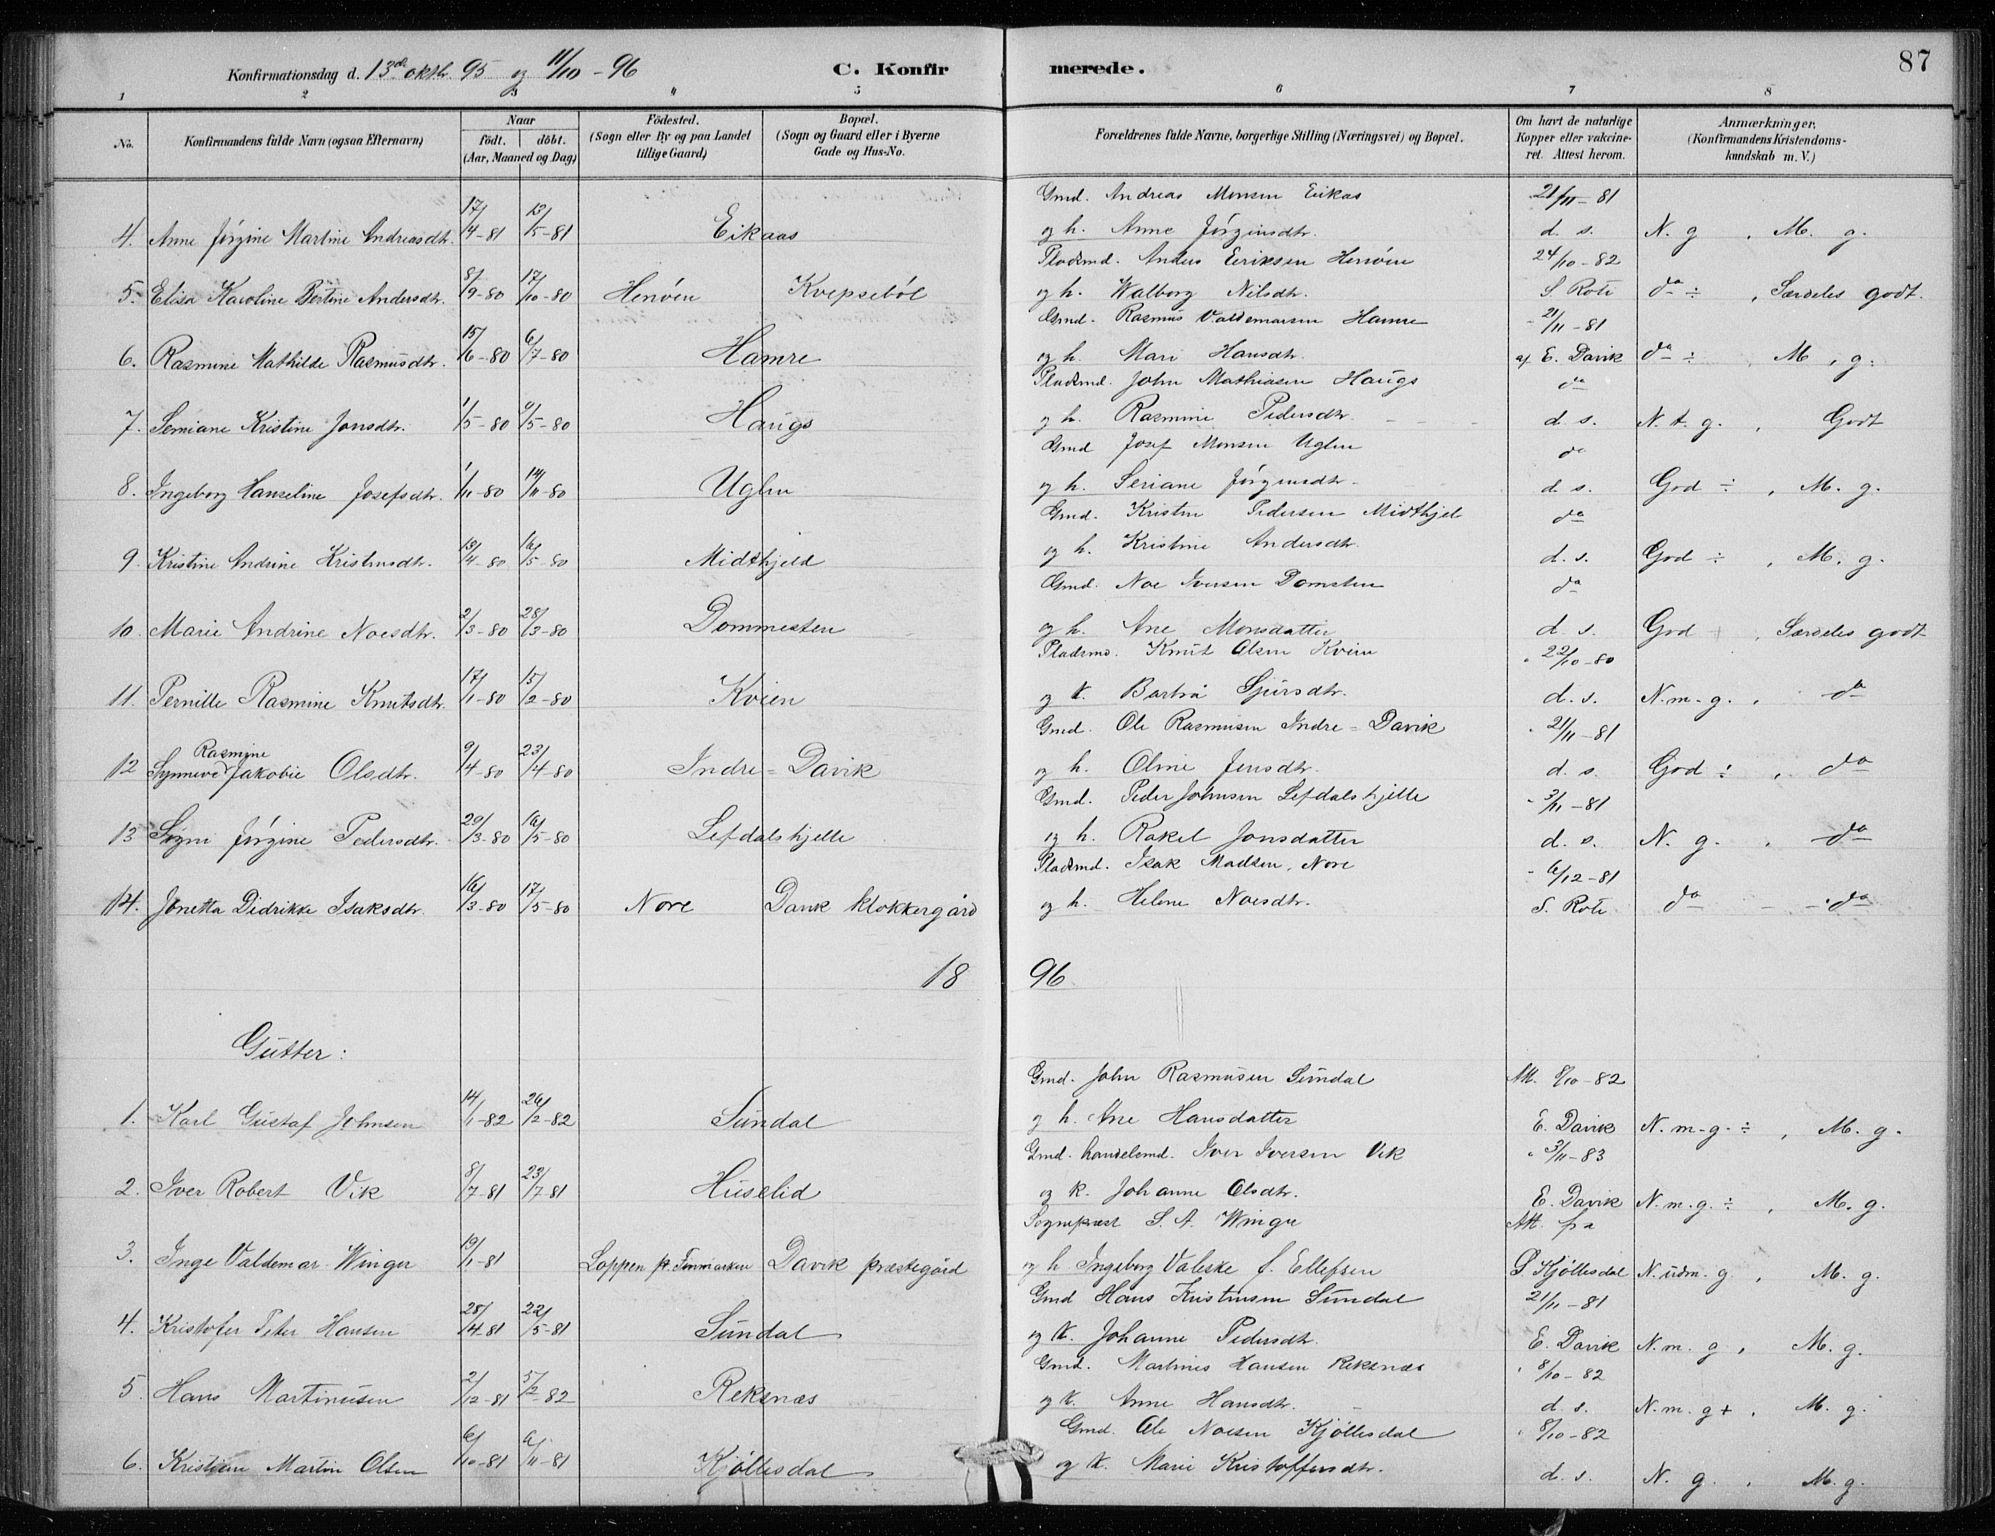 Konfirmationsdag d. 13de oktbr. 95 og 11/10 - 96 C. Konfir merede. 87
1 2 3 4 5 6 7 8
No. Konfirmandens fulde Navn (ogsaa Efternavn) Naar födt. döbt. (Aar, Maaned og Dag) Födested. (Sogn eller By og paa Landet tillige Gaard) Bopæl. (Sogn og Gaard eller i Byerne Gade og Hus-No. Forældrenes fulde Navne, borgerlige Stilling (Næringsvei) og Bopæl. Om havt de naturlige Kopper eller vakcineret. Attest herom. Anmærkninger, (Konfirmandens Kristendomskundskab m. V.)
Gmd. Andreas Monsen Eikas 21/11 - 81
4. Anne Jørgine Martine Andreasdtr. 17/4-81 13/5-81 Eikaas og h. Anne Jørginsdtr. d. s. N. g , M. g.
Pladsmd. Anders Eriksen Henøen 24/10 - 82
5. Elisa Karoline Bertine Andersdtr. 8/9-80 17/10-80 Henøen Kvepsebøl og h. Walborg Nilsdtr. S. Rote do ÷ , Særdeles godt.
Gmd. Rasmus Valdemarsen Hamre 21/11 - 81
6. Rasmine Mathilde Rasmusdtr. 15/6-80 6/7-80 Hamre og h. Mari Hansdtr. af E. Davik do ÷ M. g.
Pladsmd. John Mathiasen Haugs do
7. Semiane Kristine Jonsdtr. 1/5-80 9/5-80 Haugs og h. Rasmine Pedersdtr. d. s. N. t. g. , Godt
Gmd Josef Monsen Uglen do
8. Ingeborg Hanseline Josefsdtr. 1/11-80 14/11-80 Uglen og h. Seriane Jørgensdtr. d. s. God ÷ , M. g.
Gmd. Kristen Pedersen Midthjel do
9. Kristine Andrine Kristensdtr. 13/4-80 16/5-80 Midthjeld og h. Kristine Andersdtr. d. s. God ÷ , M. g.
Gmd. Noe Iversen Domsten do
10. Marie Andrine Noesdtr. 2/3-80 28/3-80 Dommesten og h. Ane Monsdatter d. s. God + , Særdeles godt
Pladsmd. Knut Olsen Kvien 22/10 - 80
11. Pernille Rasmine Knutsdtr. 17/1-80 15/2-80 Kvien og k. Barbra Sjursdtr. d. s. N. m. g. , do
Gmd. Ole Rasmusen Indre = Davik 21/11 - 81
12 Synneve Rasmine Jakobie Olsdtr. 9/4-80 23/4-80 Indre = Davik og h. Oline Jensdtr. d. s. God ÷ , do
Gmd. Peder Johnsen Lefdalshjelle 3/11 - 81
13 Signe Jørgine Pedersdtr. 20/3-80 16/5-80 Lefdalshjelle og h. Rakel Jonsdatter d. s. N. g. , do
Pladsmd. Isak Madsen, Nore 6/12 - 81
14. Jonetta Didrikke Isaksdtr. 16/3-80 17/5-80 Nore Davik klokkergård og h. Helene Noesdtr. S. Rote do - - do
18 96
Gutter:
Gmd. John Rasmusen Sundal Att. 8/10 - 82
1. Karl Gustaf Johnsen 14/1-82 26/2-82 Sundal og h. Ane Hansdatter E. Davik N. m. g. ÷ , M. g.
Gmd. handelsmd. Iver Iversen Vik 3/11 - 83
2. Iver Robert Vik 8/7-81 23/7-81 Huselid og k. Johanne Olsdtr. E. Davik N. m. g. ÷ , M. g.
Sogneprest S. A. Winger Att. fra
3. Inge Valdemar Winger 19/1-81 Loppen pr. Finmarken Davik præstegård og h Ingeborg Valeske f. Ellefsen P. Kjøllesdal N. udm. g , M. g.
Gmd Hans Kristensen Sundal 21/11 - 81
4. Kristofer Peter Hansen 28/4-81 22/5-81 Sundal og k. Johanne Pedersdtr. E. Davik N. m. g , M. g.
Gmd. Martines Hansen Reksnæs 8/10 - 82
5. Hans Martinusen 2/12-81 5/2-82 Reksnæs og k. Anne Hansdtr. d. s. N. m. g + . M. g.
Gmd. Ole Noesen Kjøllesdal 8/10 - 82
6. Kristian Martin Olsen 6/10-81 6/11-81 Kjøllesdal og k. Marie Kristoffersdtr. d. s. N. g. , M. g.